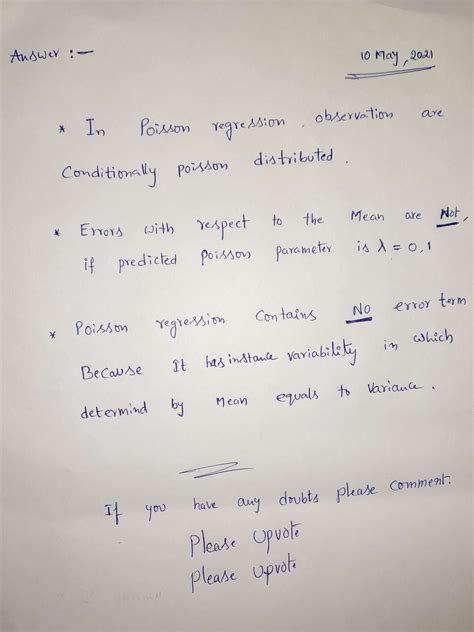 Answer :-
10 May, 2021
* In Poisson regression, observation are
Conditionally poisson distributed.
* Errors with respect to the Mean are Not,
if predicted Poisson parameter is λ = 0,1
* Poisson regression Contains NO error term
Because It has instance variability in which
determind by Mean equals to Variance.
If you have any doubts please comment.
Please Upvote
please upvote